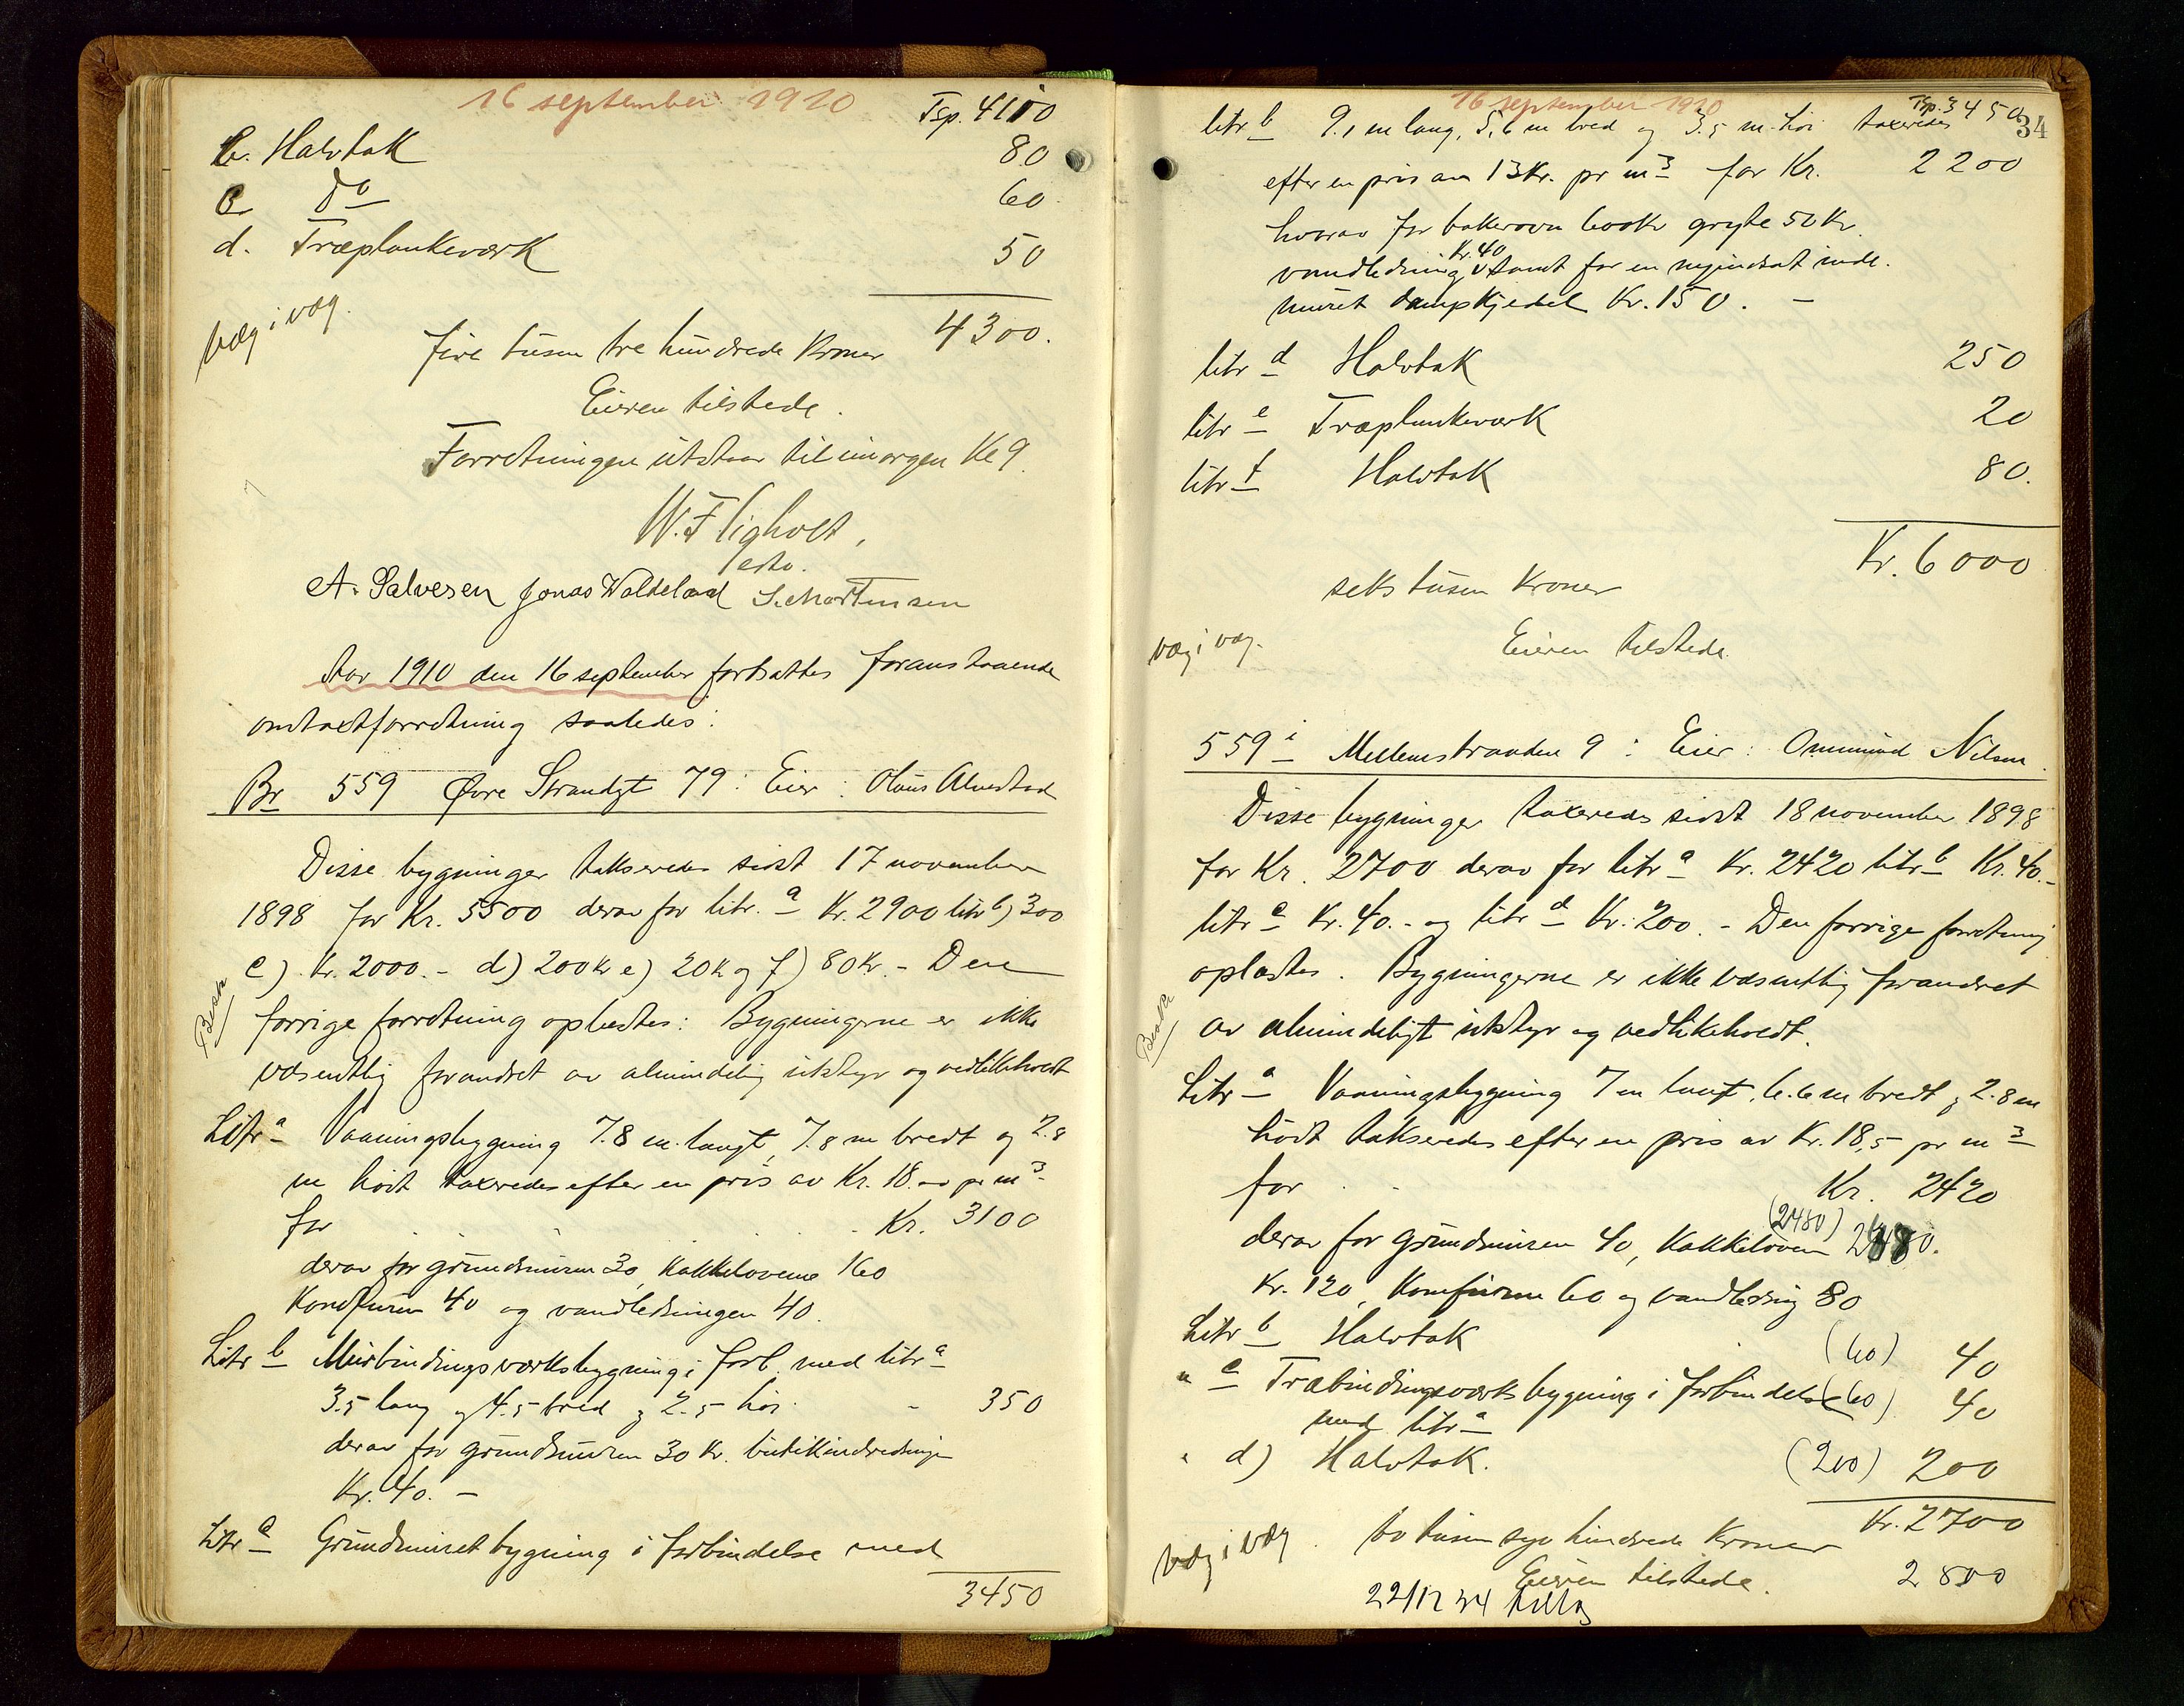 16 september 1910
Tsp. 4110
b. Halvtak 80
c. do 60
d. Træplankeværk 50
væg i væg.
fire tusen tre hundrede kroner 4300.
Eieren tilstede.
Forretningen utstaar til imorgen Kl 9.
W. F. Tigholt,
A. Salvesen Jonas Waldeland S. Mortensen
Aar 1910 den 16 september fortsattes foranstaaende
omtaxtforretning saaledes:
Br 559 Øvre Strandgt 79: Eier: Olaus Alvestad
Disse bygninger takseredes sidst 17 november
1898 for Kr. 5500 derav for litr. a Kr. 2900 litr b) 300
c) Kr. 2000.- d) 200 kr e) 20 k og f) 80 Kr. - Den
forrige forretning oplæstes: Bygningerne er ikke
væsentlig forandret av almindelig utstyr og vedlikeholdt
Litr a Vaaningsbygning 7.8 m. langt, 7.8 m bredt og 2.8
m höit taxeredes efter en pris av Kr. 18.00 pr m3
for Kr. 3100
derav for grundmuren 30, Kakkelovnene 160
Komfuren 40 og vandledningen 40.
Litr b Murbindingsværksbygning i forb. med litr a
3.5 lang og 4.5 bred og 2.5 höi - 350
derav for grundmuren 30 Kr. butikindredningen
Kr. 40. -
Litr c Grundmuret bygning i forbindelse med
3450
16 september 1910
Tsp. 3450
34
litr b 9.1 m lang, 5.6 m bred og 3.5 m. höi taxeredes
efter en pris av 13 Kr. pr m3 for Kr. 2200
hvorav for bakerovn 600 Kr gryte 50 Kr.
Kr. 40
vandledning samt for en nyindsat inde-
muret dampkjedel Kr. 150. -
litr d Halvtak 250
litr e Træplankeværk 20
litr f Halvtak 80.
Kr. 6000
seks tusen Kroner
væg i væg.
Eieren tilstede.
559 i Mellemstranden 9: Eier: Ommund Nilsen.
Disse bygninger taxeredes sidst 18 november 1898
for Kr. 2700 derav for litr a Kr. 2420 litr b Kr. 40.-
litr c Kr. 40.- og litr d Kr. 200. - Den forrige forretning
oplæstes. Bygningerne er ikke væsentlig forandret
av almindeligt utstyr og vedlikeholdt.
Litr a Vaaningsbygning 7 m langt, 6.6 m bredt og 2.8 m
höit takseredes efter en pris av Kr. 18,5 pr m3
for Kr. 2420
(2480)
derav for grundmuren 40, Kakkelovnen
Kr. 120, Komfurene 60 og vandledning 80
Litr b Halvtak (60) 40
" c Træbindingsværks bygning i forbindelse (60) 40
med litr a
" d) Halvtak. (200) 200
Kr. 2700
væg i væg. to tusen syv hundrede Kroner
Eieren tilstede. 2800
22/12 34